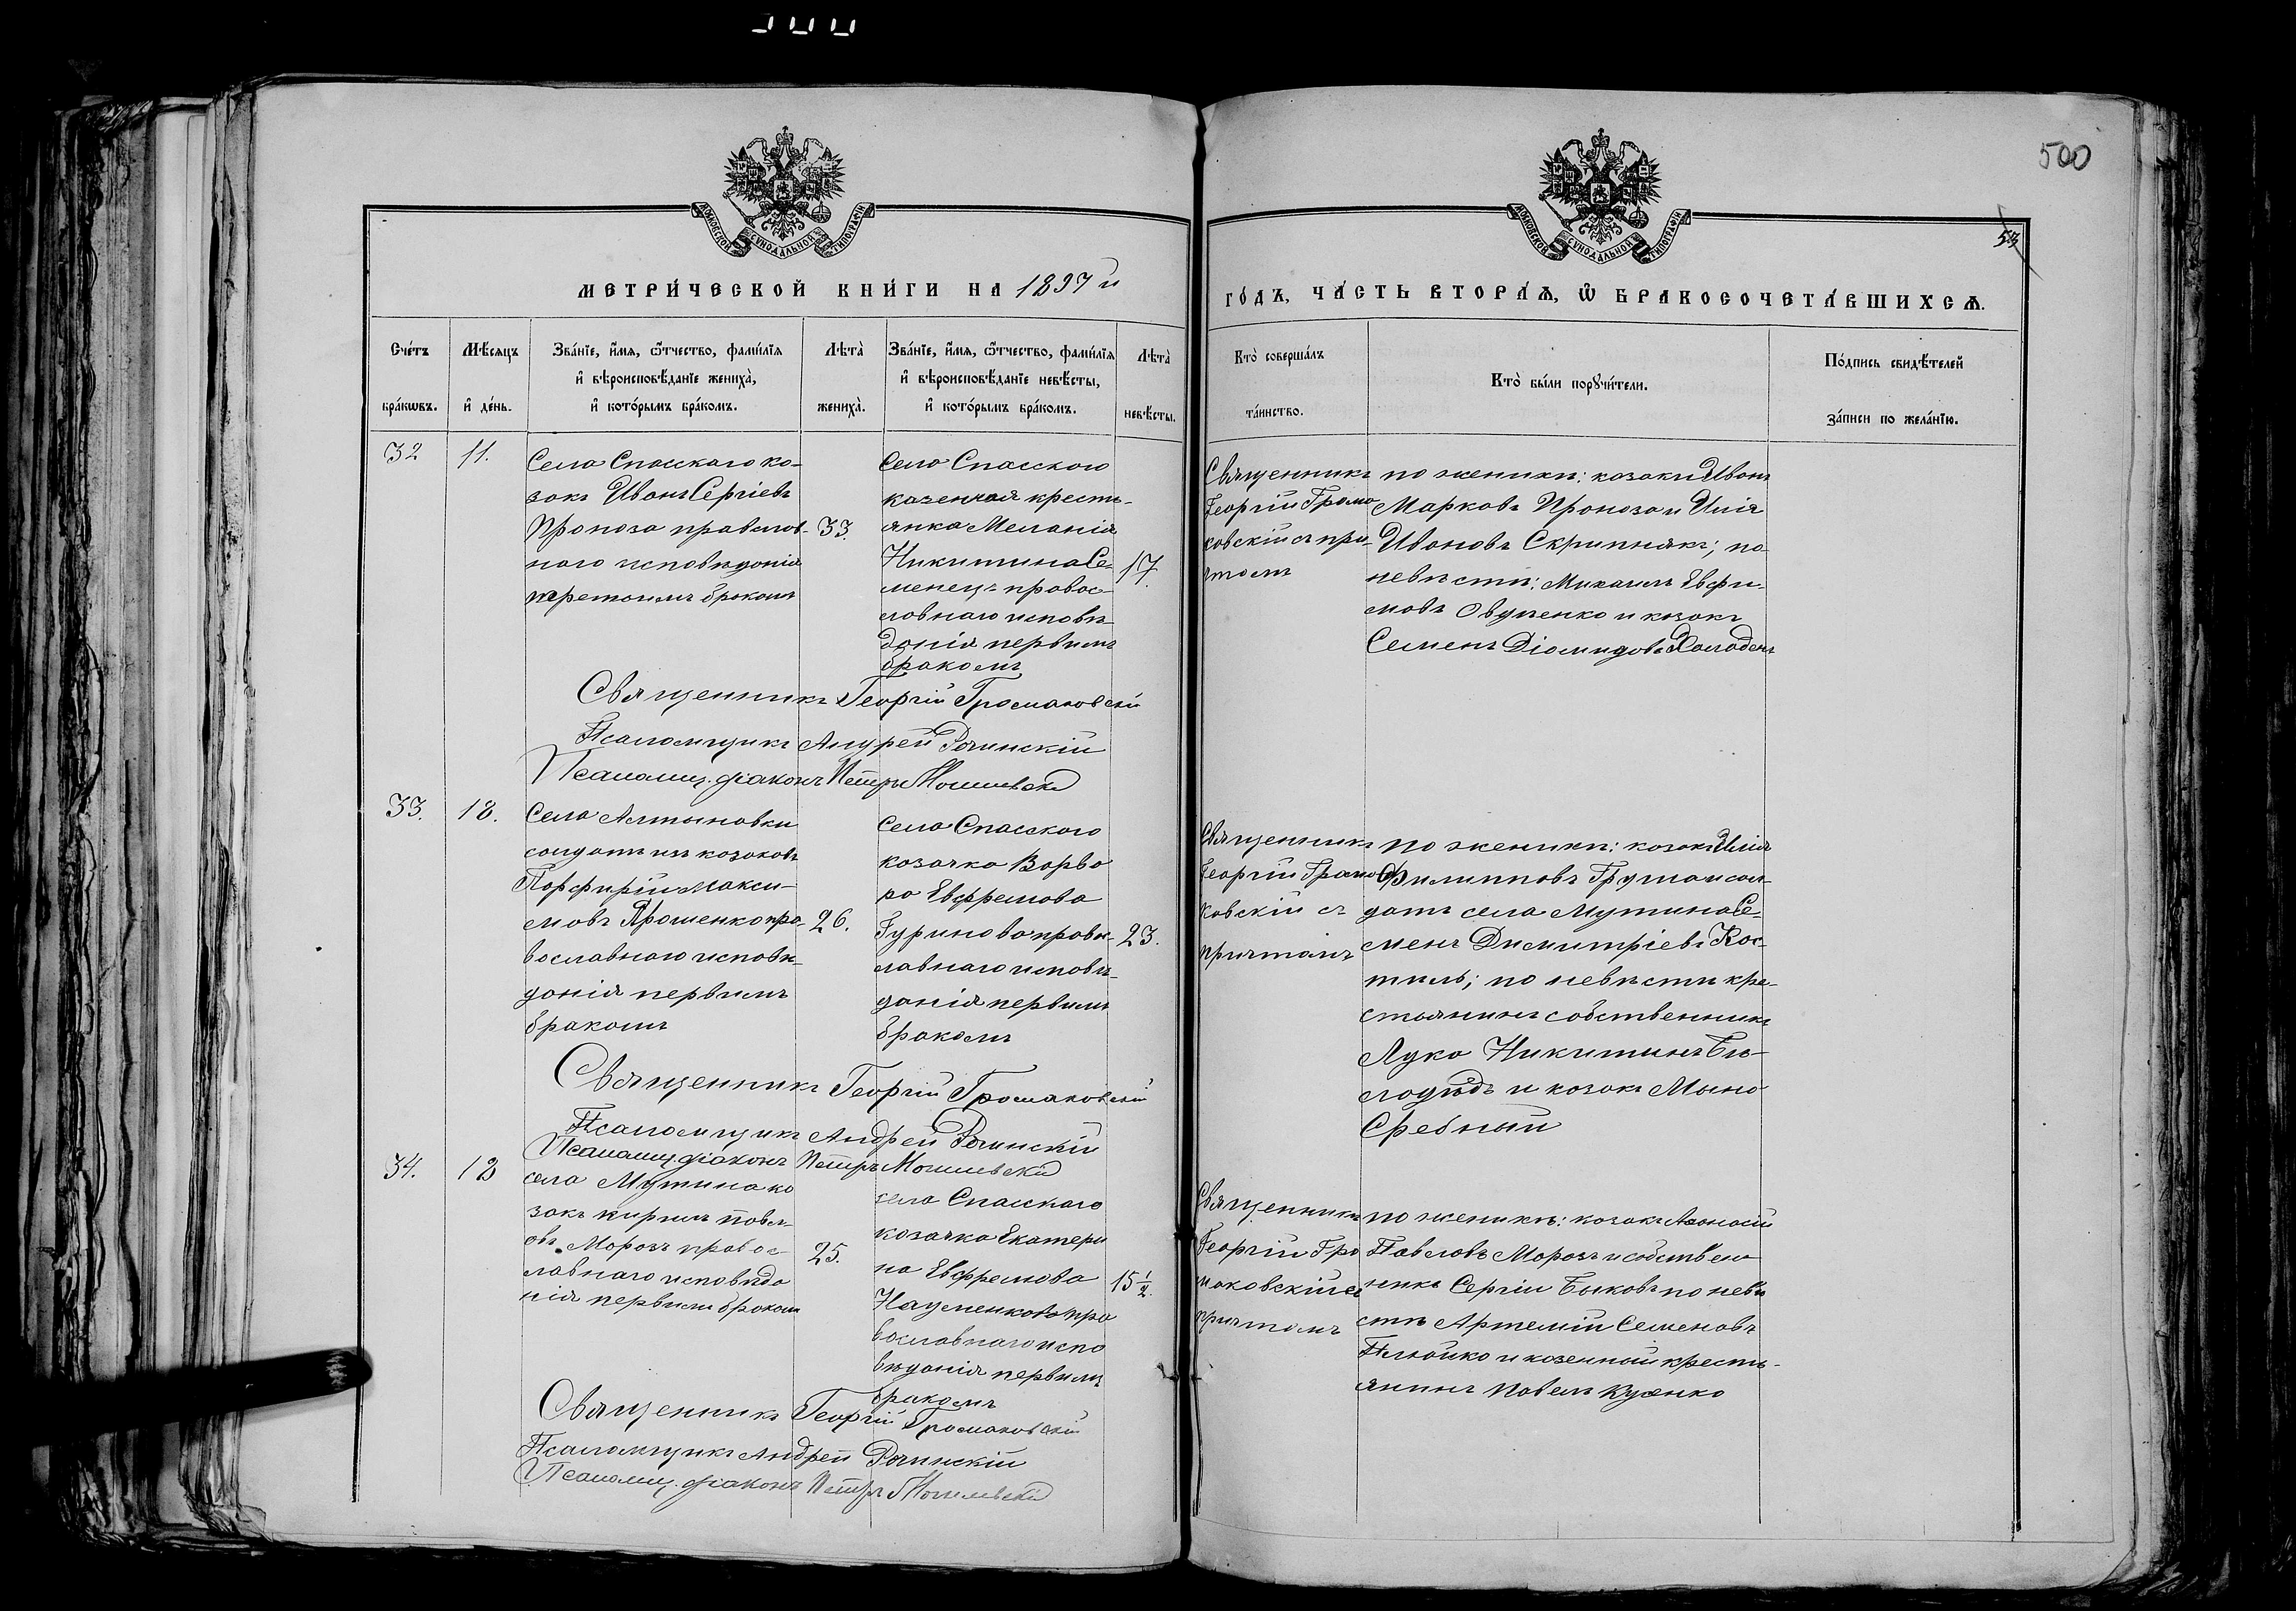 500
53
МОСКОВСКОЙ СѴНОДАЛЬНОЙ ТИПОГРАФІИ
МОСКОВСКОЙ СѴНОДАЛЬНОЙ ТИПОГРАФІИ
МЕТРИ́ЧЕСКОЙ КНИ́ГИ НА 1897 й
ГО́ДЪ, ЧА́СТЬ ВТОРА́Ѧ, Ѽ БРАКОСОЧЕТА́ВШИХСѦ.
Сче́тъ бра́кѡвъ.
Мѣ́сяцъ и҆ де́нь.
Зва́нїе, и҆́мя, ѻ҆́тчество, фами́лїя
и҆ вѣроисповѣ́данїе жениха̀,
и҆ кото́рымъ бра́комъ.
Лѣ́та̀ жениха̀.
Зва́нїе, и҆́мя, ѻ҆́тчество, фами́лїя
и҆ вѣроисповѣ́данїе невѣ́сты,
и҆ кото́рымъ бра́комъ.
Лѣ́та̀ невѣ́сты.
Кто̀ соверша́лъ
та́инство.
Кто̀ бы́ли порꙋчи́тели.
По́дпись свидѣ́телей
за́писи по жела́нїю.
32
11.
Села Спасскаго ко-
закъ Иванъ Сергіевъ
Проноза православ-
наго исповѣданія
третьимъ бракомъ
33.
Села Спасскаго
казенная кресть-
янка Меланія
Никитина Се-
менецъ правос-
лавнаго исповѣ-
данія первымъ
бракомъ
17
Священникъ
Георгій Грома
ковскій съ при-
чтомъ
по женихѣ: козаки Иванъ
Марковъ Проноза и Илія
Ивановъ Скрипникъ; по
невѣстѣ: Михаилъ Евфи-
мовъ Овдіенко и козакъ
Семенъ Діомидовъ Холодетъ
Священникъ Георгій Громаковскій
Псаломщикъ Андрей Рогинскій
Псаломщ. діаконъ Петръ Могилевскій
33.
18.
Села Алтыновки
солдатъ изъ козаковъ
Порфирій Макси-
мовъ Ярошенко пра-
вославнаго исповѣ-
данія первымъ
бракомъ
26.
Села Спасскаго
козачка Варва
ра Евфремова
Гуринова правос-
лавнаго исповѣ-
данія первымъ
бракомъ
23.
Священникъ
Георгій Грома
ковскій съ
причтомъ
по женихѣ: козакъ Илія
Филипповъ Груша и сол-
датъ села Мутина Се-
менъ Димитріевъ Кос-
тиль; по невѣстѣ кре-
стьянинъ собственникъ
Лука Никитинъ Бѣ-
лодѣдъ и козакъ Мина
Сребный
Священникъ Георгій Громаковскій
Псаломщикъ Андрей Рогинскій
Псаломщ. діаконъ Петръ Могилевскій
34.
18
села Мутина ко
закъ Кирилъ Павл-
овъ Морозъ правос-
лавнаго исповѣда
нія первымъ бракомъ
25.
села Спасскаго
козачка Екатери
на Евфремова
Науменкова пра
вославнаго испо
вѣданія первымъ
бракомъ
15 ½.
Священникъ
Георгій Гро
маковскій съ
причтомъ
по женихѣ: козакъ Аѳанасій
Павловъ Морозъ и собствен
никъ Сергій Быковъ по невѣ
стѣ Артемій Семеновъ
и казенный кресть-
янинъ Павелъ
Священникъ Георгій Громаковскій
Псаломщикъ Андрей Рогинскій
Псаломщ. діаконъ Петръ Могилевскій